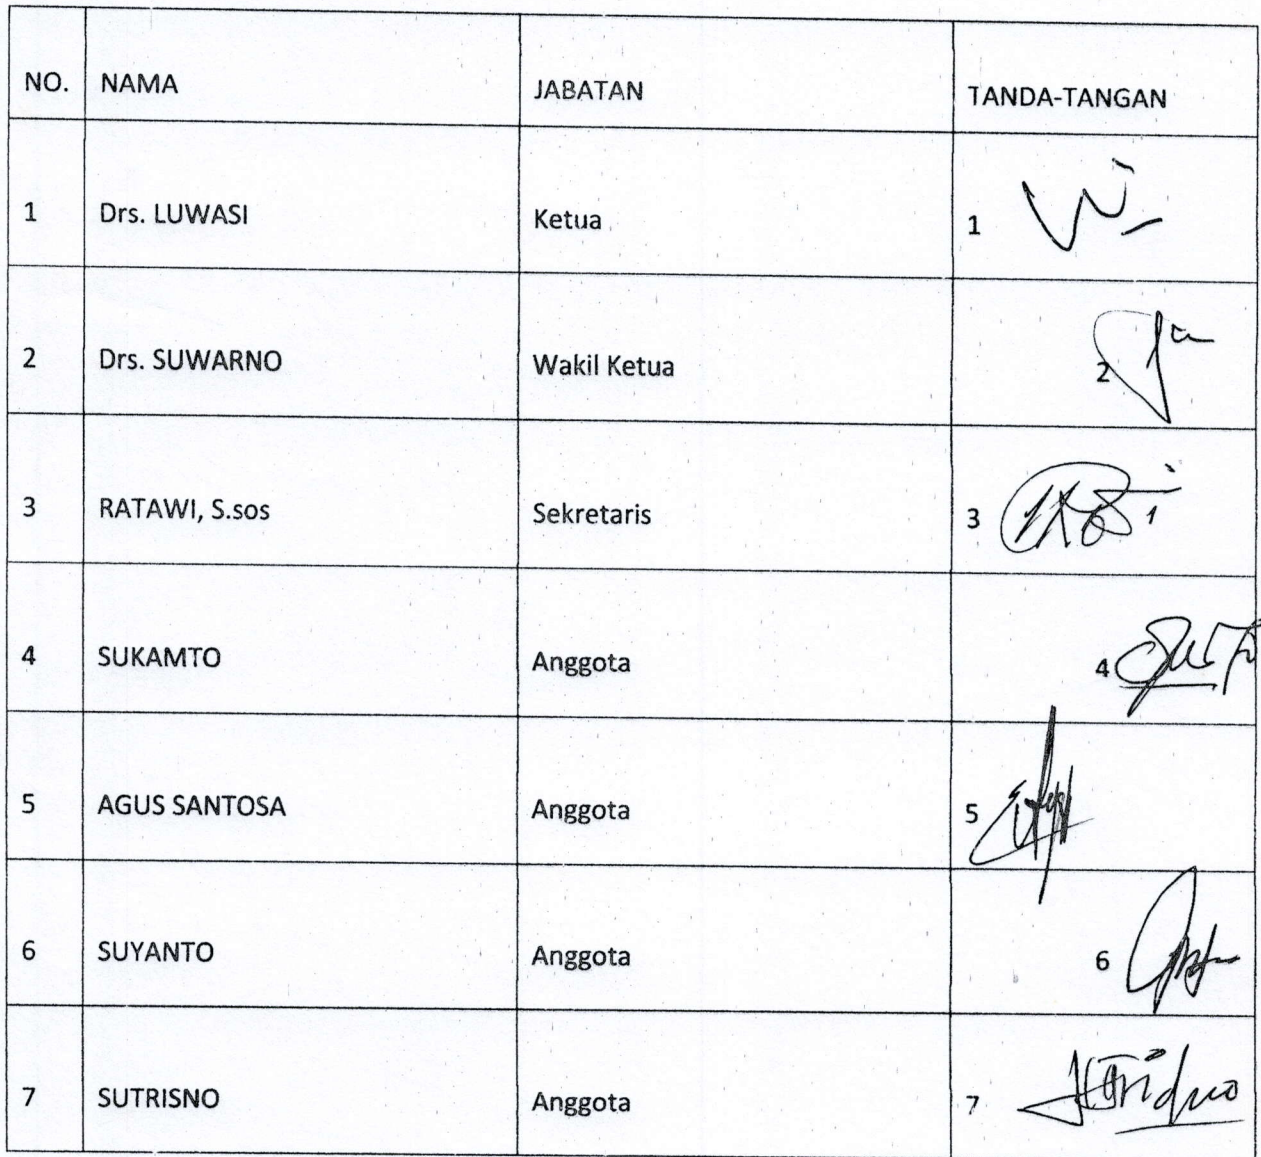 NO. NAMA JABATAN TANDA-TANGAN
1 Drs. LUWASI Ketua 1
2 Drs. SUWARNO Wakil Ketua 2
3 RATAWI, S.sos Sekretaris 3
4 SUKAMTO Anggota 4
5 AGUS SANTOSA Anggota 5
6 SUYANTO Anggota 6
7 SUTRISNO Anggota 7